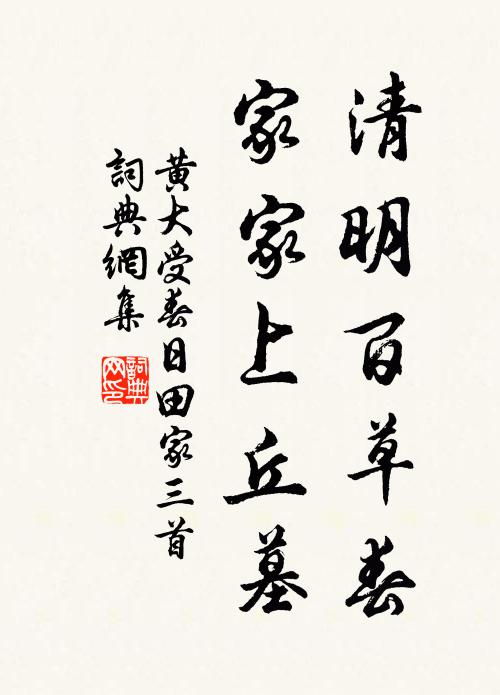 清明百草春
家家上丘墓
黄大受春日田家三首
詞典網集
詞典網印